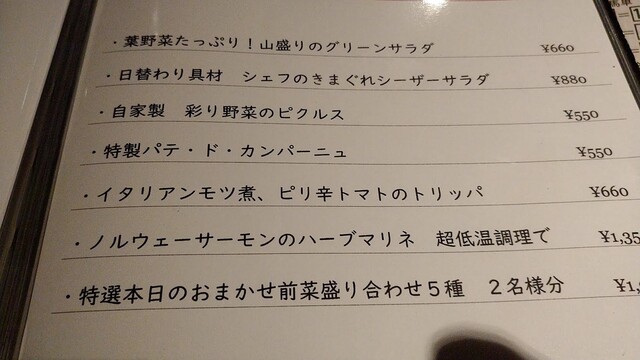 ・葉野菜たっぷり！山盛りのグリーンサラダ ¥660
・日替わり具材　シェフのきまぐれシーザーサラダ ¥880
・自家製　彩り野菜のピクルス ¥550
・特製パテ・ド・カンパーニュ ¥550
・イタリアンモツ煮、ピリ辛トマトのトリッパ ¥660
・ノルウェーサーモンのハーブマリネ　超低温調理で ¥1,35
・特選本日のおまかせ前菜盛り合わせ５種　２名様分 ¥1,